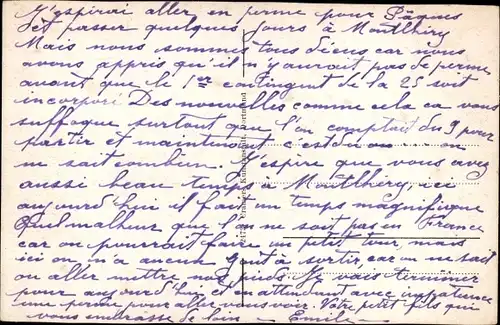 J'espérai aller en perme pour Pâques
et passer quelques jours à Montlhéry
Mais nous sommes tous déçus car nous
avons appris qu'il n'y aurait pas de perme
avant que le 1er contingent de la 25 soit
incorporé Des nouvelles comme cela ca vous
suffoque surtout que l'on comptait du 9 pour
partir et maintenant c'est du on
ne sait combien. J'espère que vous avez
aussi beau temps à Montlhéry, ici
aujourd'hui il fait un temps magnifique
Quel malheur que l'on ne soit pas en France
car on pourrait faire un petit tour, mais
ici on n'a aucun goût à sortir, car on ne sait
ou aller mettre nos pieds. Je vais terminer
pour aujourd'hui et en attendant avec impatience
une perme pour aller vous voir. Votre petit fils qui
vous embrasse de loin. Emile